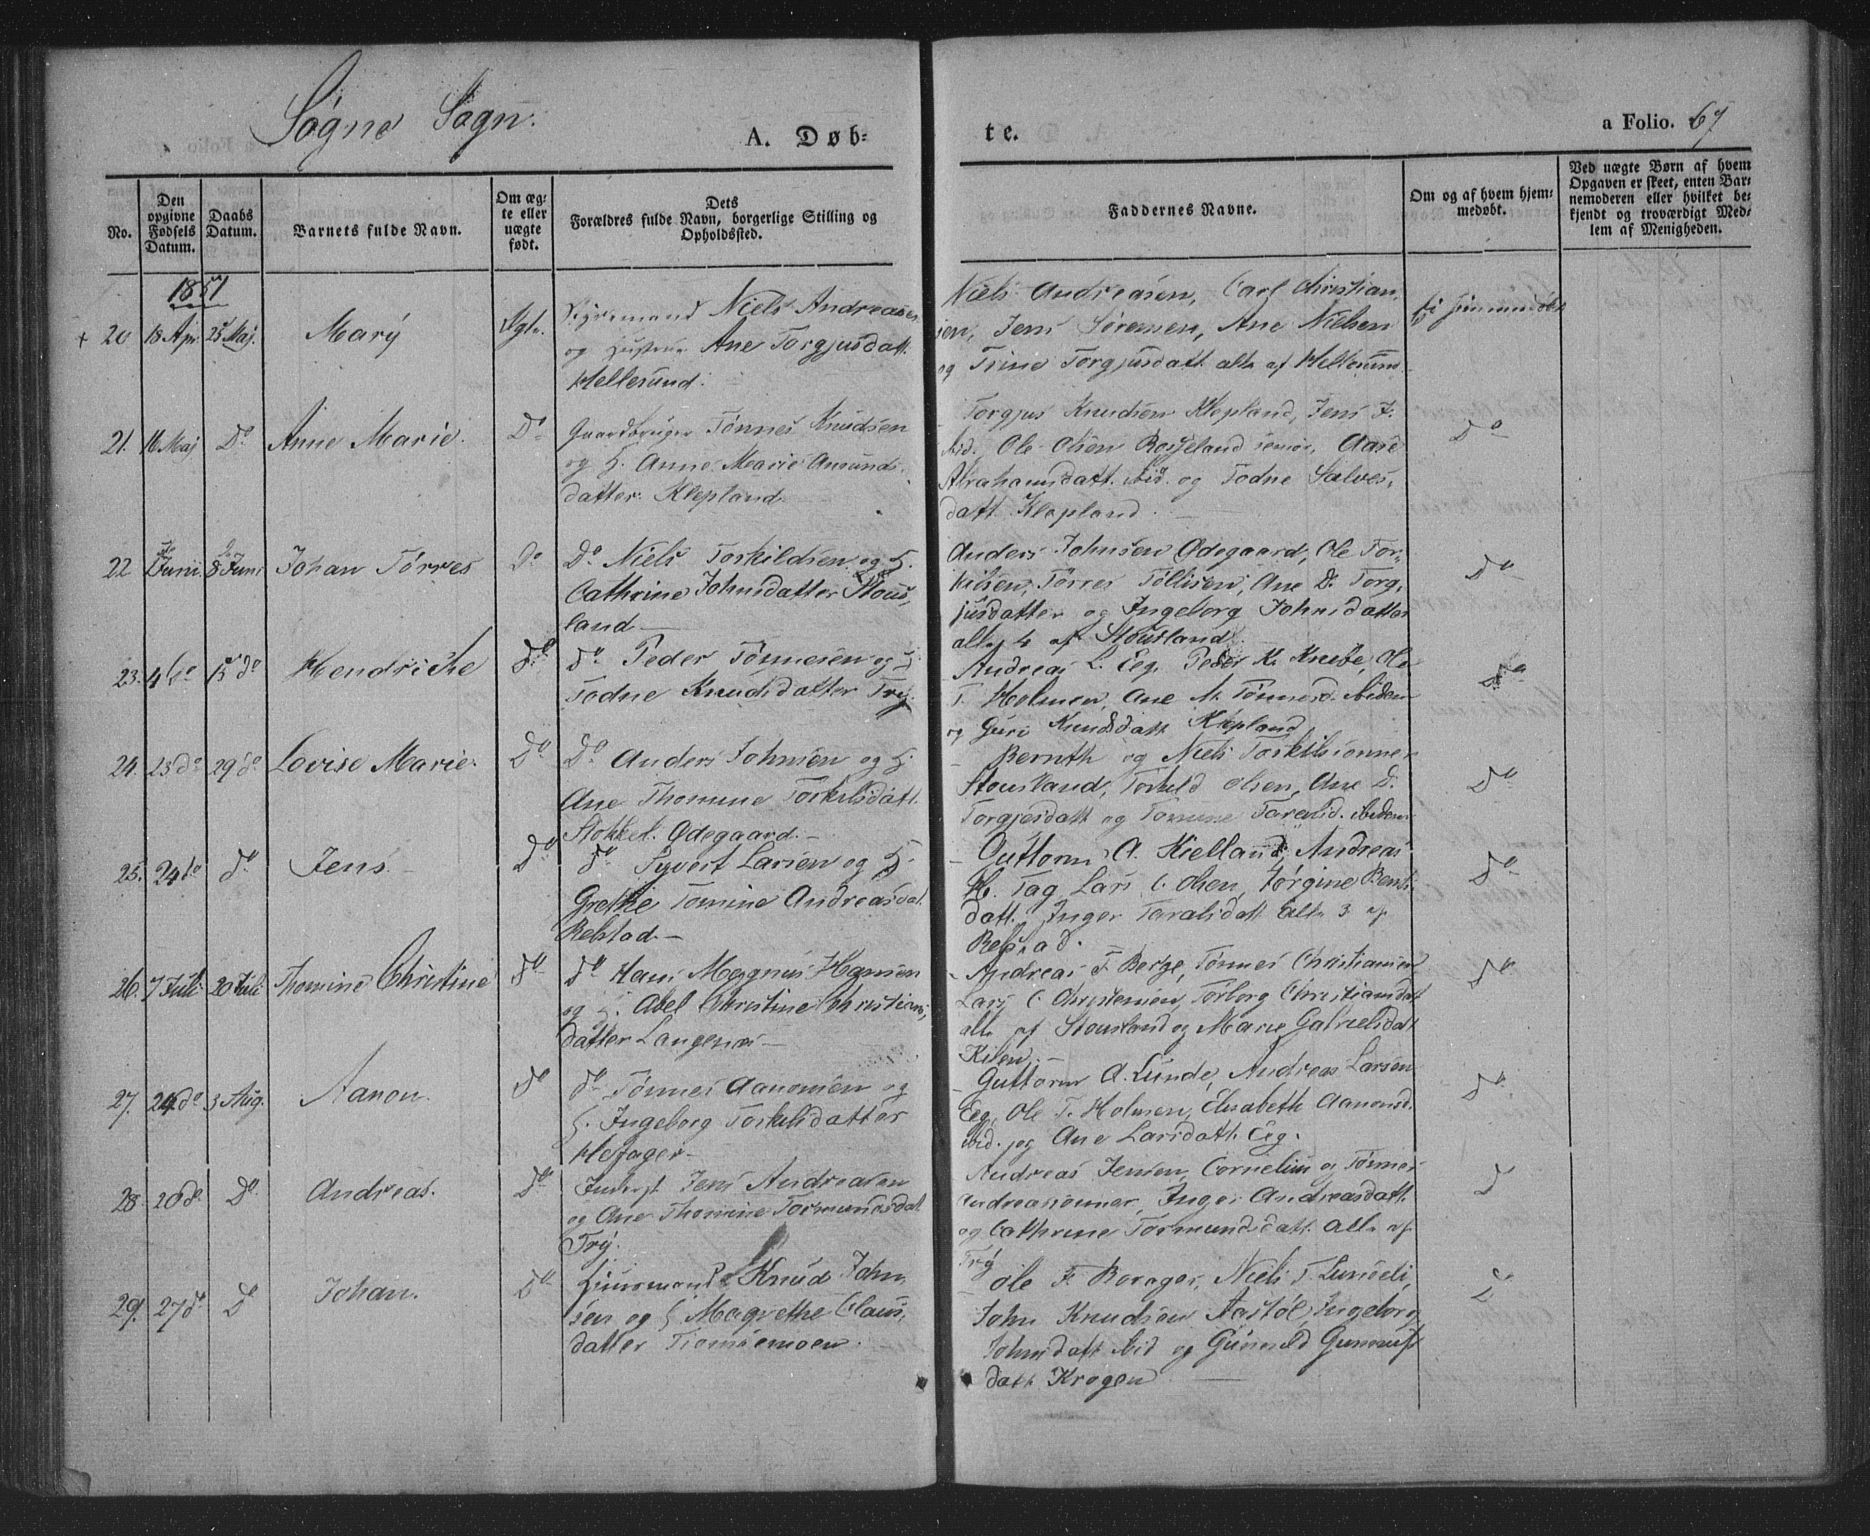 Søgne Sogn.
A. Døb-
te.
a Folio. 67
No.
Den opgivne Fødsels Datum.
Daabs Datum.
Barnets fulde Navn.
Om ægte eller uægte født.
Dets
Forældres fulde Navn, borgerlige Stilling og
Opholdssted.
Faddernes Navne.
Om og af hvem hjem-
medøbt.
Ved uægte Børn af hvem
Opgaven er skeet, enten Bar-
nemoderen eller hvilket be-
kjendt og troværdigt Med-
lem af Menigheden.
1851
+ 20 18 Apr. 25 Maj. Marÿ Ægte.
Styrmand Niels Andreasen
og Hustrue Ane Torgjusdatt.
Hellesund.
Niels Andreasen, Carl Christian-
sen, Jens Sørensen, Ane Nielsen
og Trine Torgjusdatt alle af Hellesund
ei hjemmedøbt
21. 16 Maj Do Anne Marie. Do
Gaardbruger Tønnes Knudsen
og H. Anne Marie Amunds-
datter Klepland
Torgjus Knudsen Klepland, Jens J.
ibid. Ole Olsen Rosseland senior, Aase
Abrahamsdatt. ibid. og Todne Salves-
datt. Klepland.
Do
22 Juni 8 Juni Johan Tørres Do
Do Niels Torkildsen og H.
Cathrine Johnsdatter Stous-
land
Anders Johnsen Ødegaard, Ole Tor-
kilsen, Tørres Tøllisen, Ane D. Torg-
jusdatter og Ingeborg Johnsdatter
alle 4 af Stousland.
Do
23. 4 do 15 do Hendriche Do
Do Peder Tønnesen og H.
Todne Knudsdatter Trÿ.
Andreas L. Eeg, Peder K. Knebe, Ole
T. Holmen, Ane M. Tønnesd. ibidem
og Guri Knudsdatt Klepland
Do
24. 23 do 29 do Lovise Marie. Do
Do Anders Johnsen og H.
Ane Thomine Torkilsdatt.
Stokkel. Ødegaard.
Bernth og Niels Torkilsønner
Stousland, Torkild Olsen, Ane D.
Torgjusdatt og Tomine Taralsd. ibidem
Do
25. 24 do do Jens Do
do Syvert Larsen og H.
Grethe Tomine Andreasdat.
Repstad.
Guttorm A. Kielland, Andreas
H. Tag, Lars C. Olsen, Jørgine Bent-
datt. Inger Taralsdatt alle 3 af
Repstad.
Do
26. 7 Juli 20 Juli Thomine Christine do
do Hans Magnus Hansen
og H. Abel Christine Christians-
datter Langenes
Andreas F. Berge, Tønnes Christiansen
Lars C. Christensen, Torborg Christiansdat
alle af Stousland og Marie Gabrielsdat
Kilen.
Do
27. 24 do 3 Aug. Aanon. do
do Tønnes Aanonsen og
H. Ingeborg Torkelsdatter
Højager
Guttorm A. Lunde, Andreas Larsen
Eeg, Ole T. Holmen, Elisabeth Aanonsd.
ibid. og Ane Larsdatt. Eeg.
Do
28. 26 do Do Andreas. Do
Inderst Jens Andreasen
og Ane Thomine Tormundsdat
Trÿ.
Andreas Jensen, Cornelius og Tønnes
Andreassønner, Inger Andreasdatt.
og Cathrine Tormundsdatt. alle af
Trÿ
D
29. 27 do Do Johan. Do
Huusmand Knud John-
sen og H Magrethe Claus-
datter Tromsemoen.
Ole F. Borager, Niels T. Lunseli,
John Knudsen Aastøl, Ingeborg
Johnsdatt ibid og Gunnild Gunnulfs
datt Krogen
D